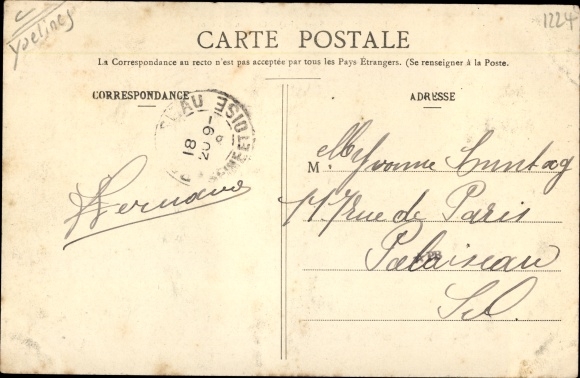 Yvelines
1224
CARTE POSTALE
La Correspondance au recto n'est pas acceptée par tous les Pays Étrangers. (Se renseigner à la Poste.
CORRESPONDANCE
ADRESSE
18
20 9
ET OISE
M
Yvonne
rue de Paris
Palaiseau